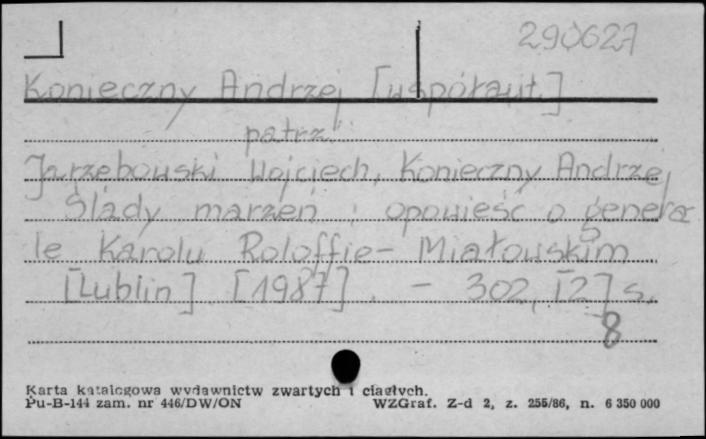 290627
Konieczny Andrzej [współaut.]
patrz:
Jarzębowski Wojciech, Konieczny Andrzej
Ślady marzeń : opowieść o genera
le Karolu Roloffie-Miałowskim
[Lublin] [1987]. - 302, [2] s.
8
Karta katalogowa wydawnictw zwartych i ciągłych.
Pu-B-144 zam. nr 446/DW/ON WZGraf. Z-d 2, z. 255/86, n. 6 350 000